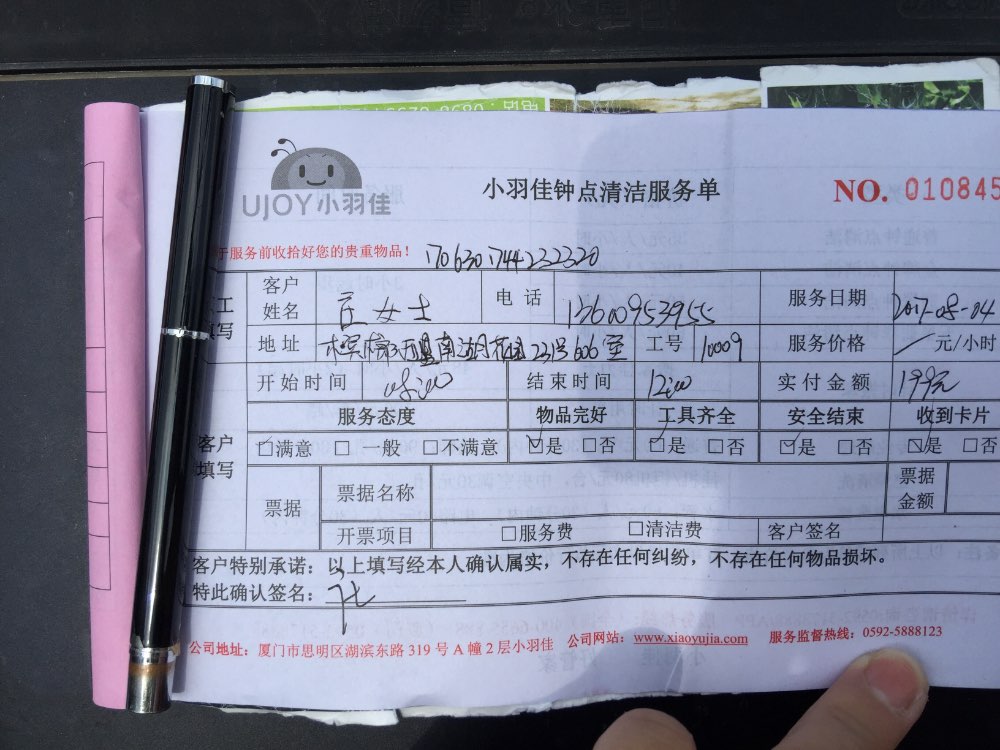 UJOY小羽佳
小羽佳钟点清洁服务单
NO. 010845
于服务前收拾好您的贵重物品！ 1706301744232320
工 客户姓名 女士 电话 13600953955 服务日期 2017-08-04
填写 地址 南湖花园23号606室 工号 10009 服务价格 元/小时
开始时间 结束时间 12:00 实付金额 199元
服务态度 物品完好 工具齐全 安全结束 收到卡片
客户填写 ☑满意 □一般 □不满意 ☑是 □否 ☑是 □否 ☑是 □否 ☑是 □否
票据 票据名称 票据金额
开票项目 □服务费 □清洁费 客户签名
客户特别承诺：以上填写经本人确认属实，不存在任何纠纷，不存在任何物品损坏。
特此确认签名：
公司地址：厦门市思明区湖滨东路 319 号 A 幢 2 层小羽佳 公司网站：www.xiaoyujia.com 服务监督热线：0592-5888123